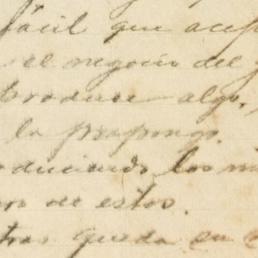 fácil que acep
el negocio del
produce algo,
la propongo.
oduciendo los m
ro de estos.
tras queda en